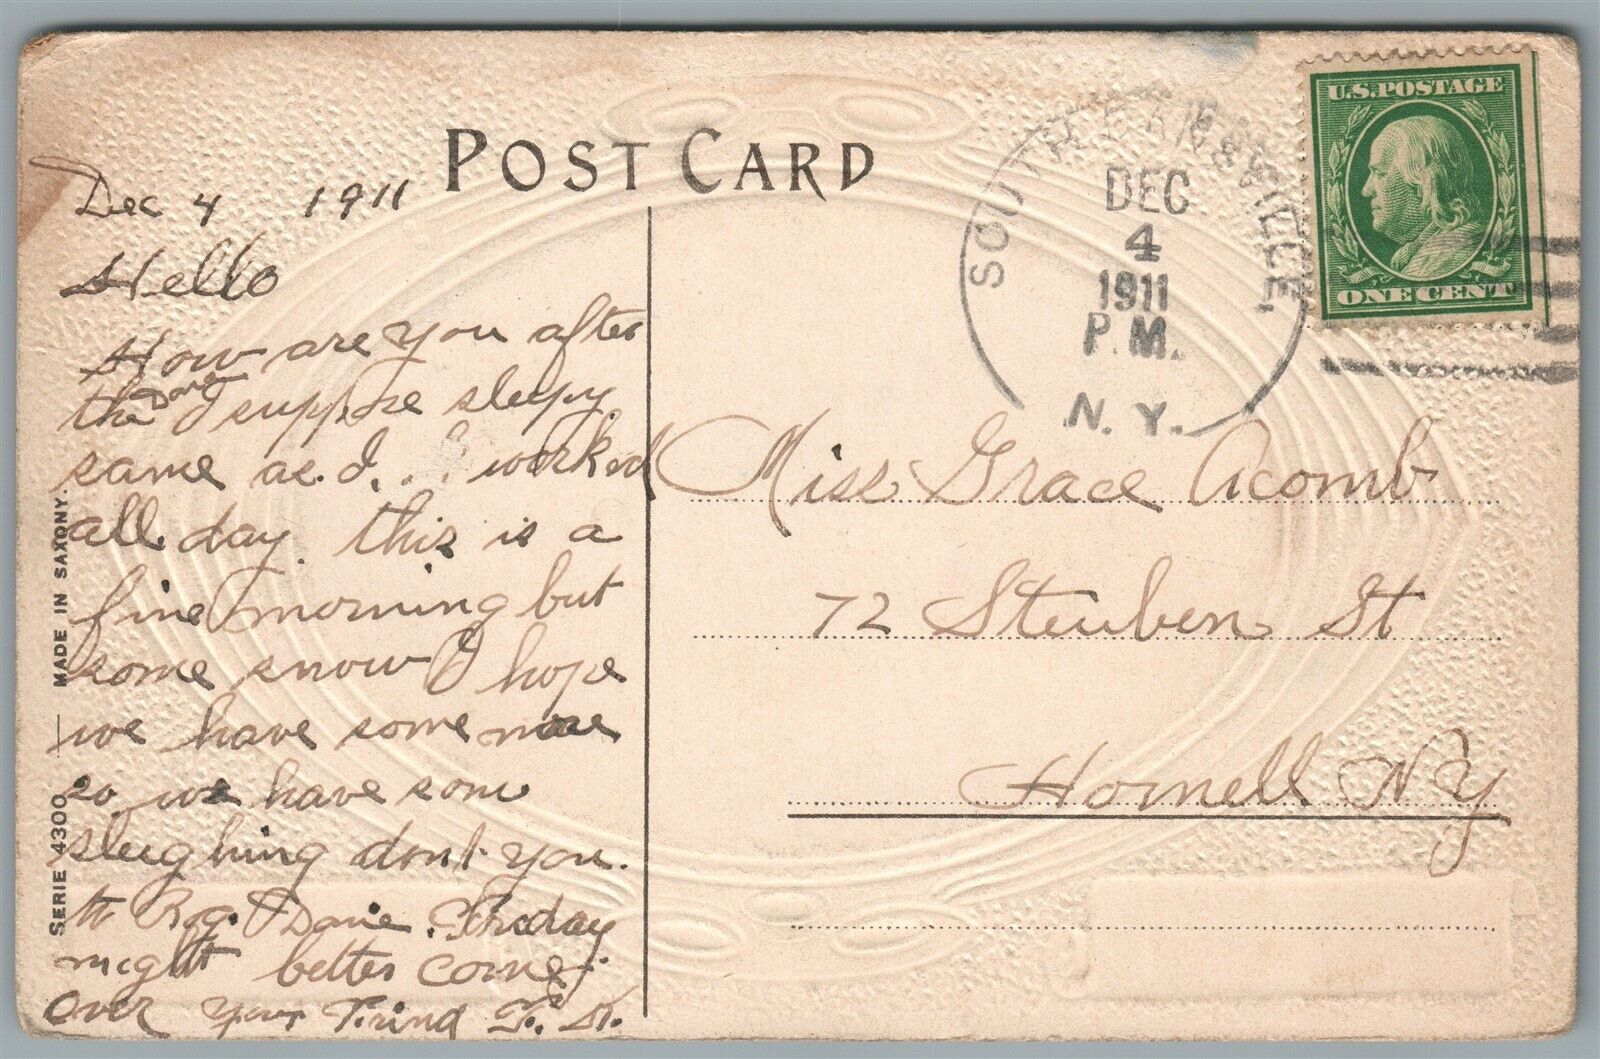 POST CARD
U.S. POSTAGE
ONE CENT
SOUTH DANSVILLE,
DEC
4
1911
P.M.
N.Y.
Dec 4 1911
Hello
How are you after
the Dance I suppose sleepy
same as I... I worked
all day. this is a
fine morning but
some snow I hope
we have some more
so we have som
sleighing dont you.
Dance. Friday
night better come
over your Frind
Miss Grace Acomb
72 Steuben St
Hornell NY
SERIE 4300 — MADE IN SAXONY.